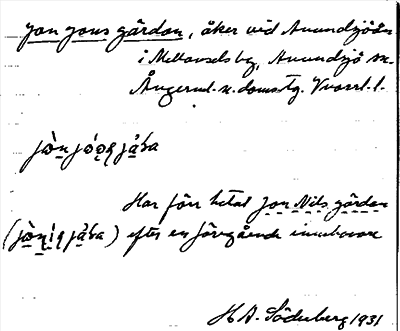 Jon Jons gärdan, åker vid Anundsjöån
i Mellansels by, Anundsjö sn.
Ångerml. n. doms. tg. Vnorrl. l.
Har förr hetat Jon Nils gärdan
efter en föregående innehavare
H A. Söderberg 1931